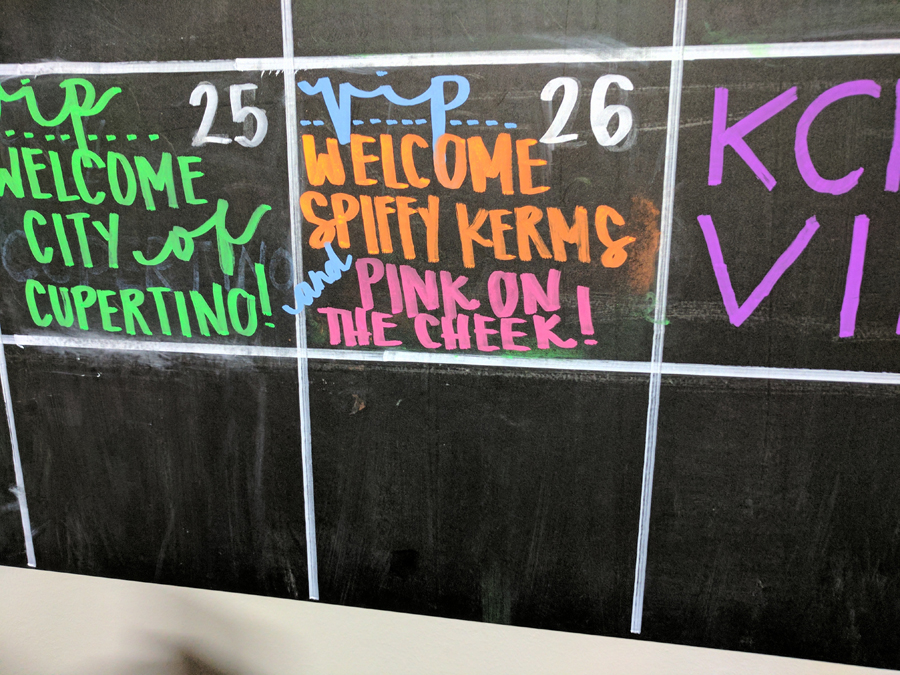 vip 25
WELCOME
CITY of
CUPERTINO!
vip 26
WELCOME
SPIFFY KERMS
and PINK ON
THE CHEEK!